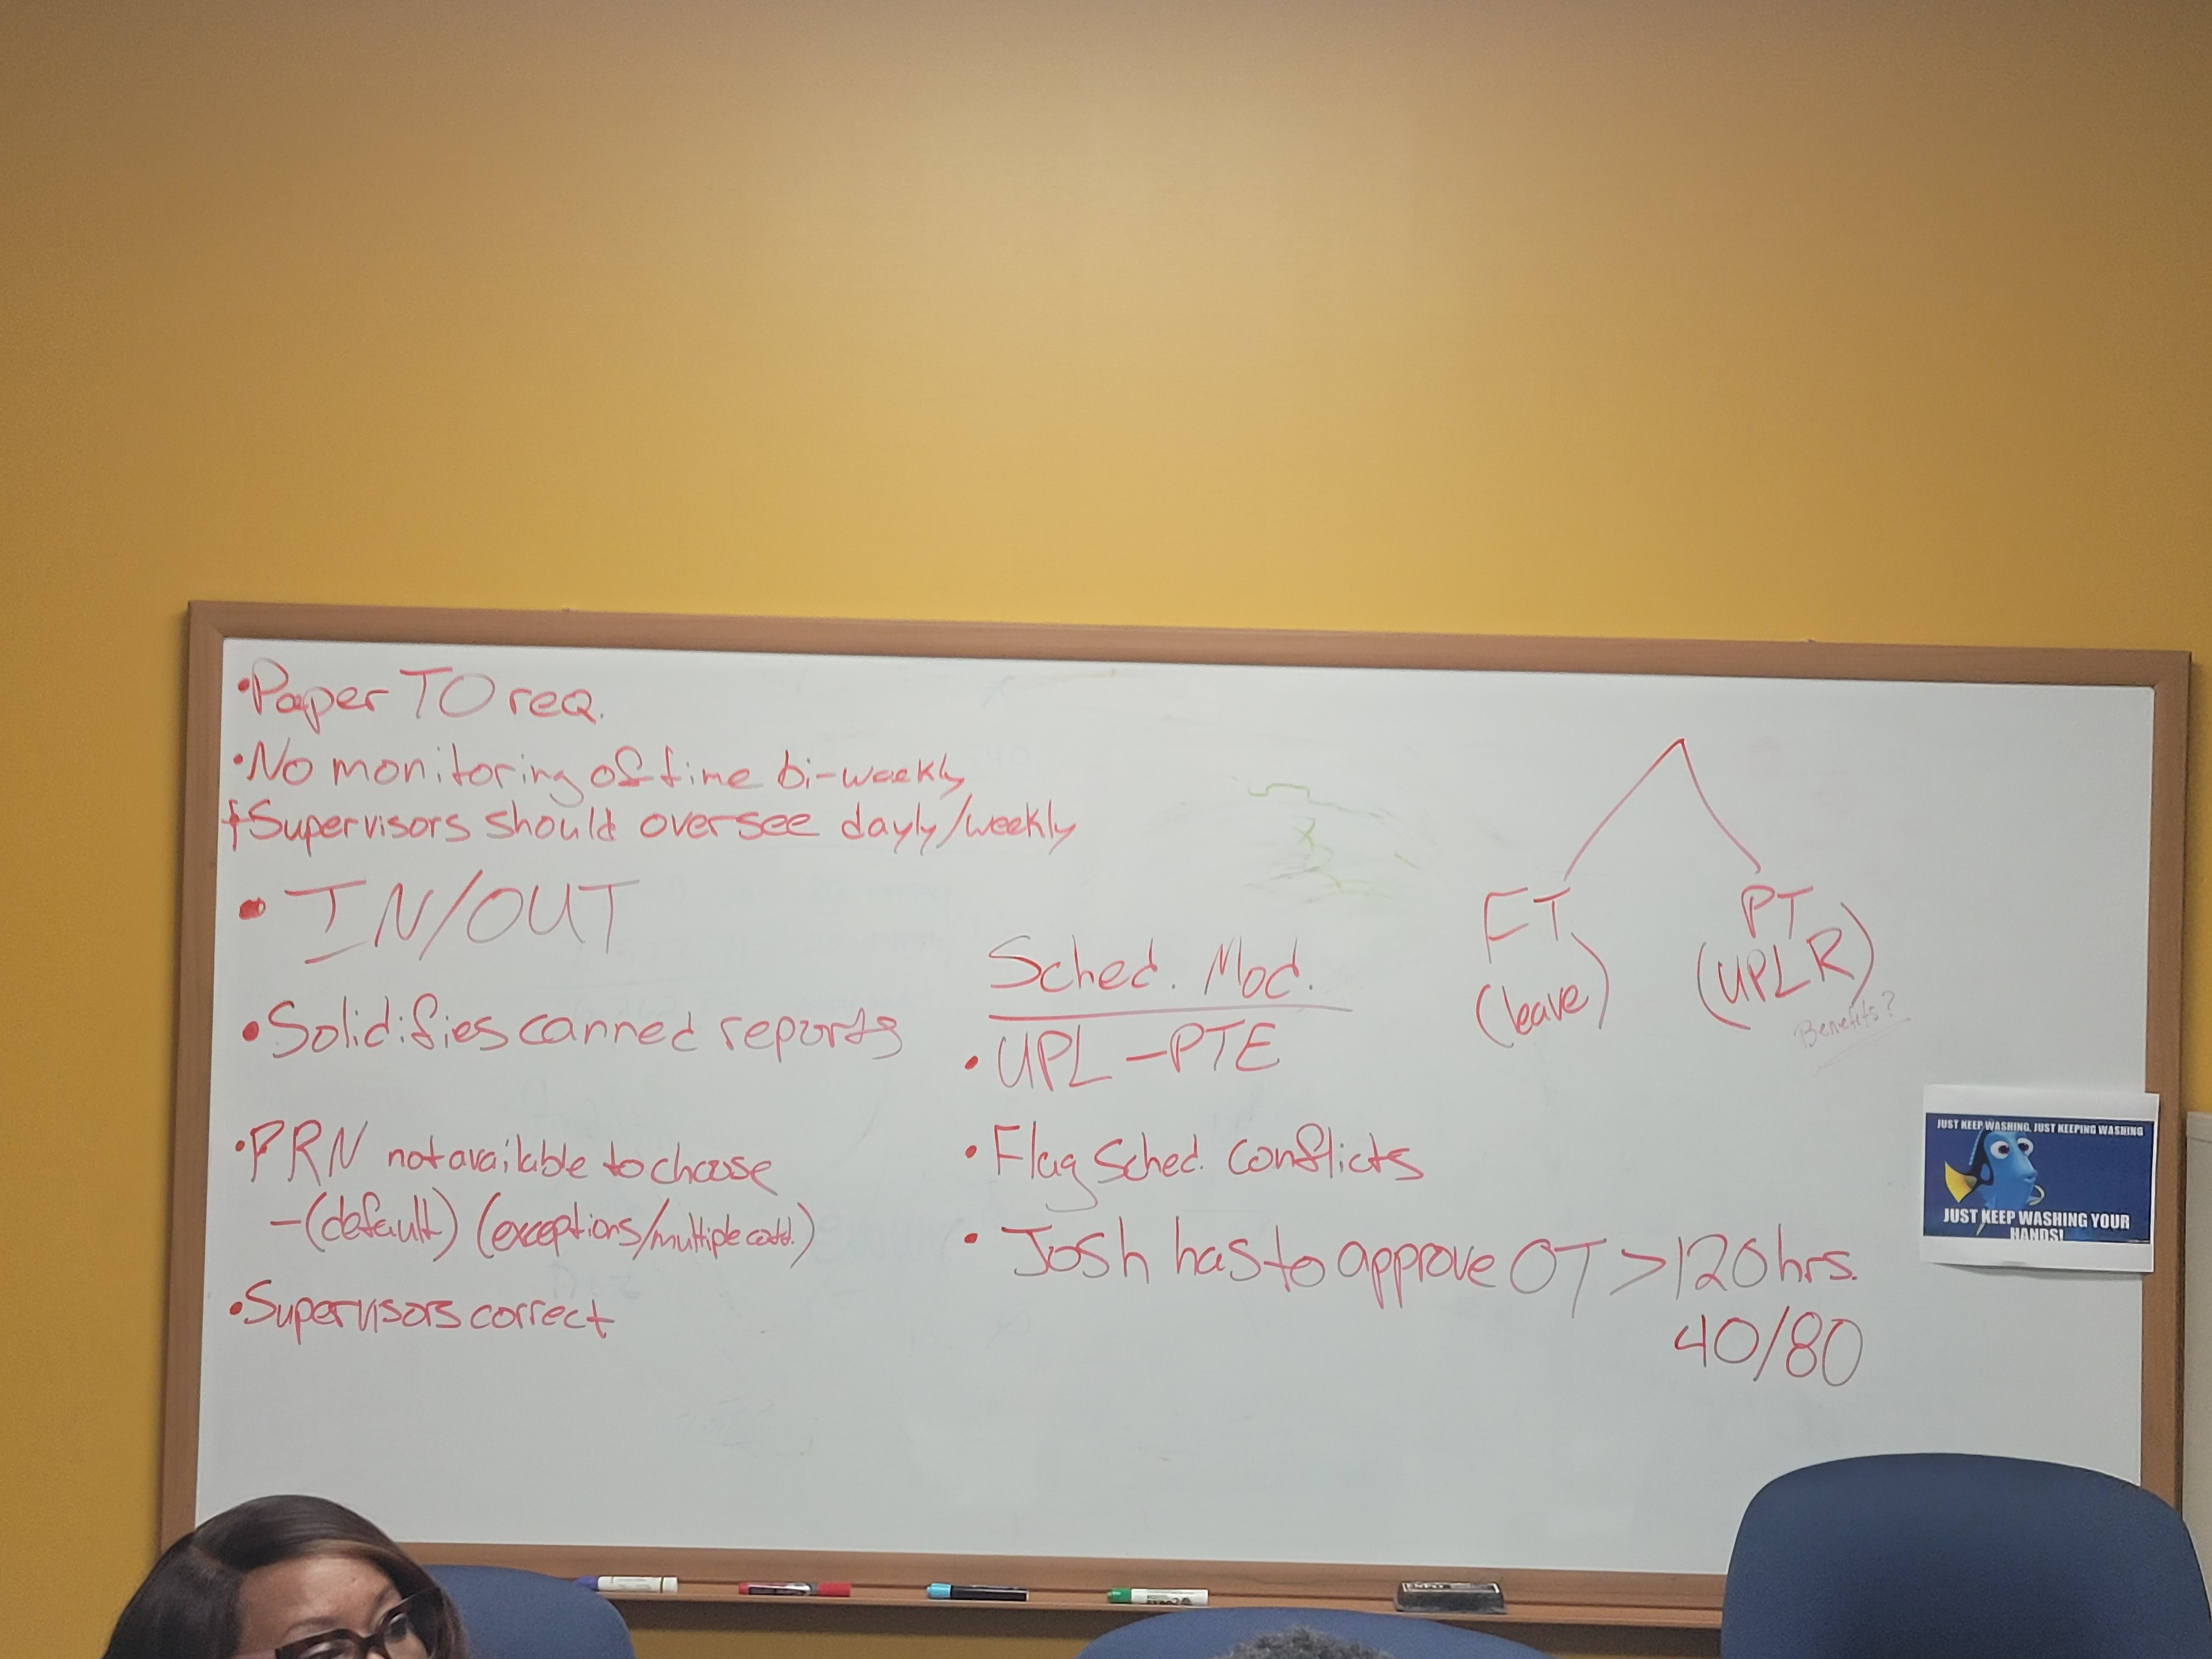 •Paper TO req.
•No monitoring of time bi-weekly
Supervisors should oversee dayly/weekly
• IN/OUT
•Solidifies canned reports
•PRN not available to choose
-(default) (exceptions/multiple
•Supervisors correct
Sched. Mod.
• UPL-PTE
• Flag Sched. conflicts
• Josh has to approve OT >120hrs.
40/80
FT
(leave)
PT
(UPLR)
Benefits?
JUST KEEP WASHING, JUST KEEPING WASHING
JUST KEEP WASHING YOUR
HANDS!
EXPO